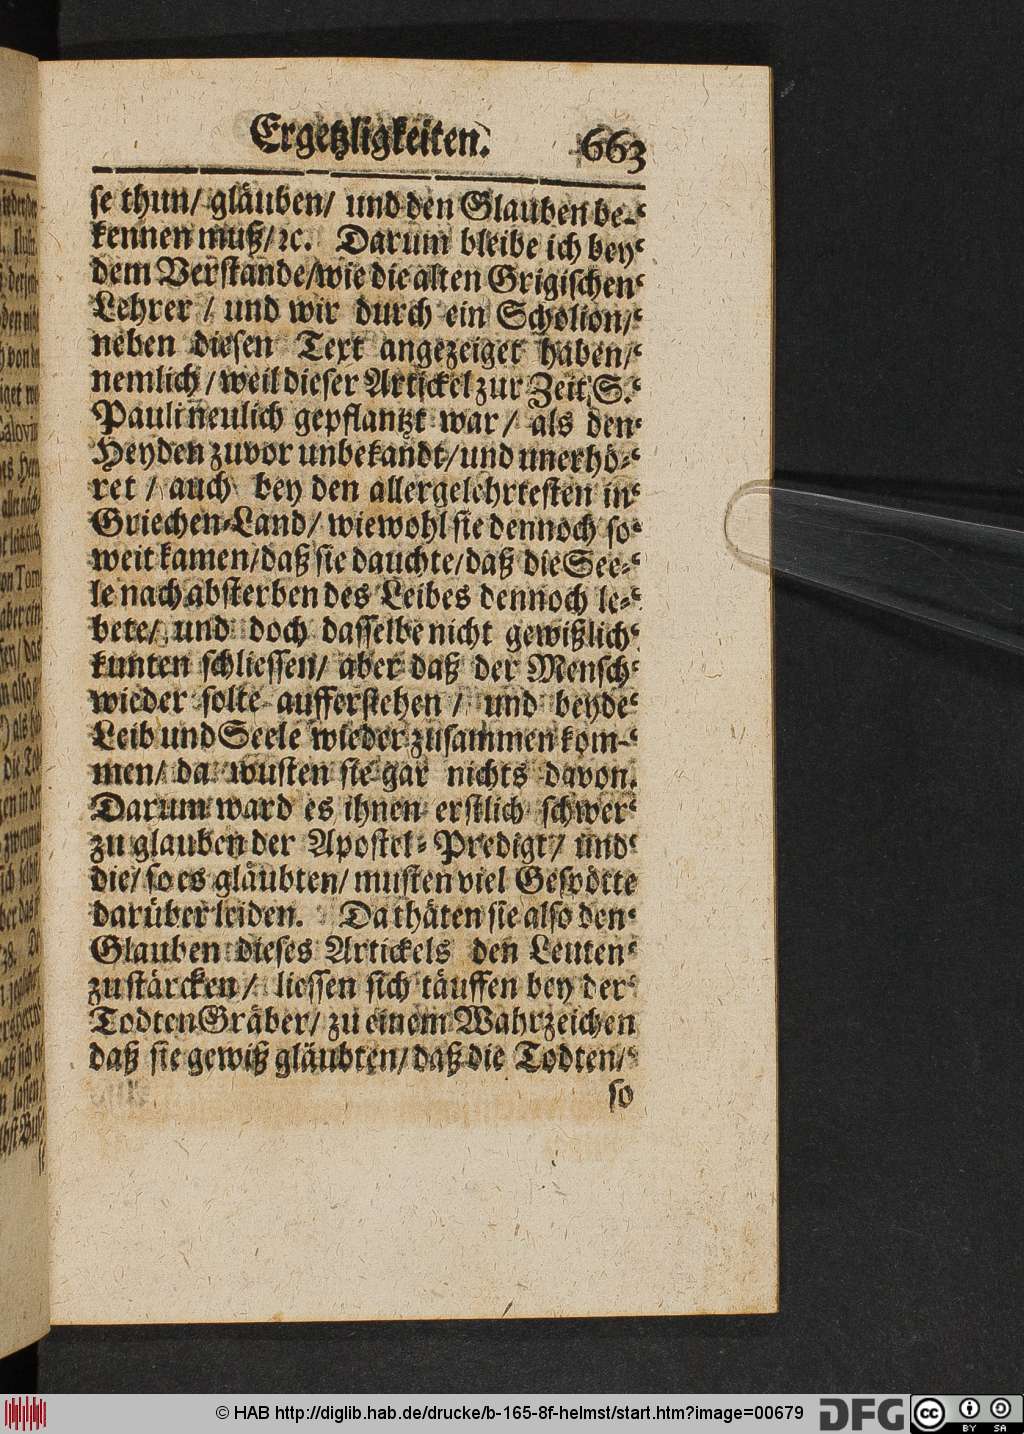 Ergetzligkeiten. 663
se thun/ gläuben/ und den Glauben be-‘
kennen muß/ ꝛc. Darum bleibe ich bey‘
dem Verstande/wie die alten Grigischen‘
Lehrer / und wir durch ein Scholion/‘
neben diesen Text angezeiget haben/‘
nemlich / weil dieser Artickel zur Zeit S.‘
Pauli neulich gepflantzt war / als den‘
Heyden zuvor unbekandt/und unerhö-‘
ret / auch bey den allergelehrtesten in‘
Griechen-Land/ wiewohl sie dennoch so‘
weit kamen/daß sie dauchte/daß die See-‘
le nach absterben des Leibes dennoch le-‘
bete/ und doch dasselbe nicht gewißlich‘
kunten schliessen/ aber daß der Mensch‘
wieder solte aufferstehen / und beyde‘
Leib und Seele wieder zusammen kom-‘
men/ da wusten sie gar nichts davon.
Darum ward es ihnen erstlich schwer‘
zu glauben der Apostel-Predigt/ und‘
die/ so es gläubten/ musten viel Gespötte
darüber leiden. Da thäten sie also den‘
Glauben dieses Artickels den Leuten‘
zu stärcken / liessen sich täuffen bey der‘
Todten Gräber/ zu einem Wahrzeichen
daß sie gewiß gläubten/ daß die Todten/‘
so
© HAB http://diglib.hab.de/drucke/b-165-8f-helmst/start.htm?image=00679 DFG cc BY SA